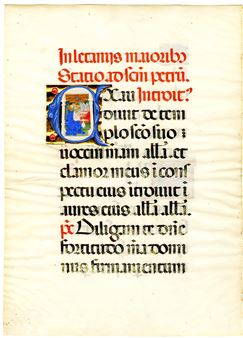 In letaniis maiorib9
Statio ad scm petrū.
Exau Introit9
diuit de tem
plo scō suo :
uocem mam allā. et
clamor meus ī cons
pectu eius ītrouit ī
aures eius allā allā.
ps Diligam te dnē
fortitudo mā domi
nus firmamentum